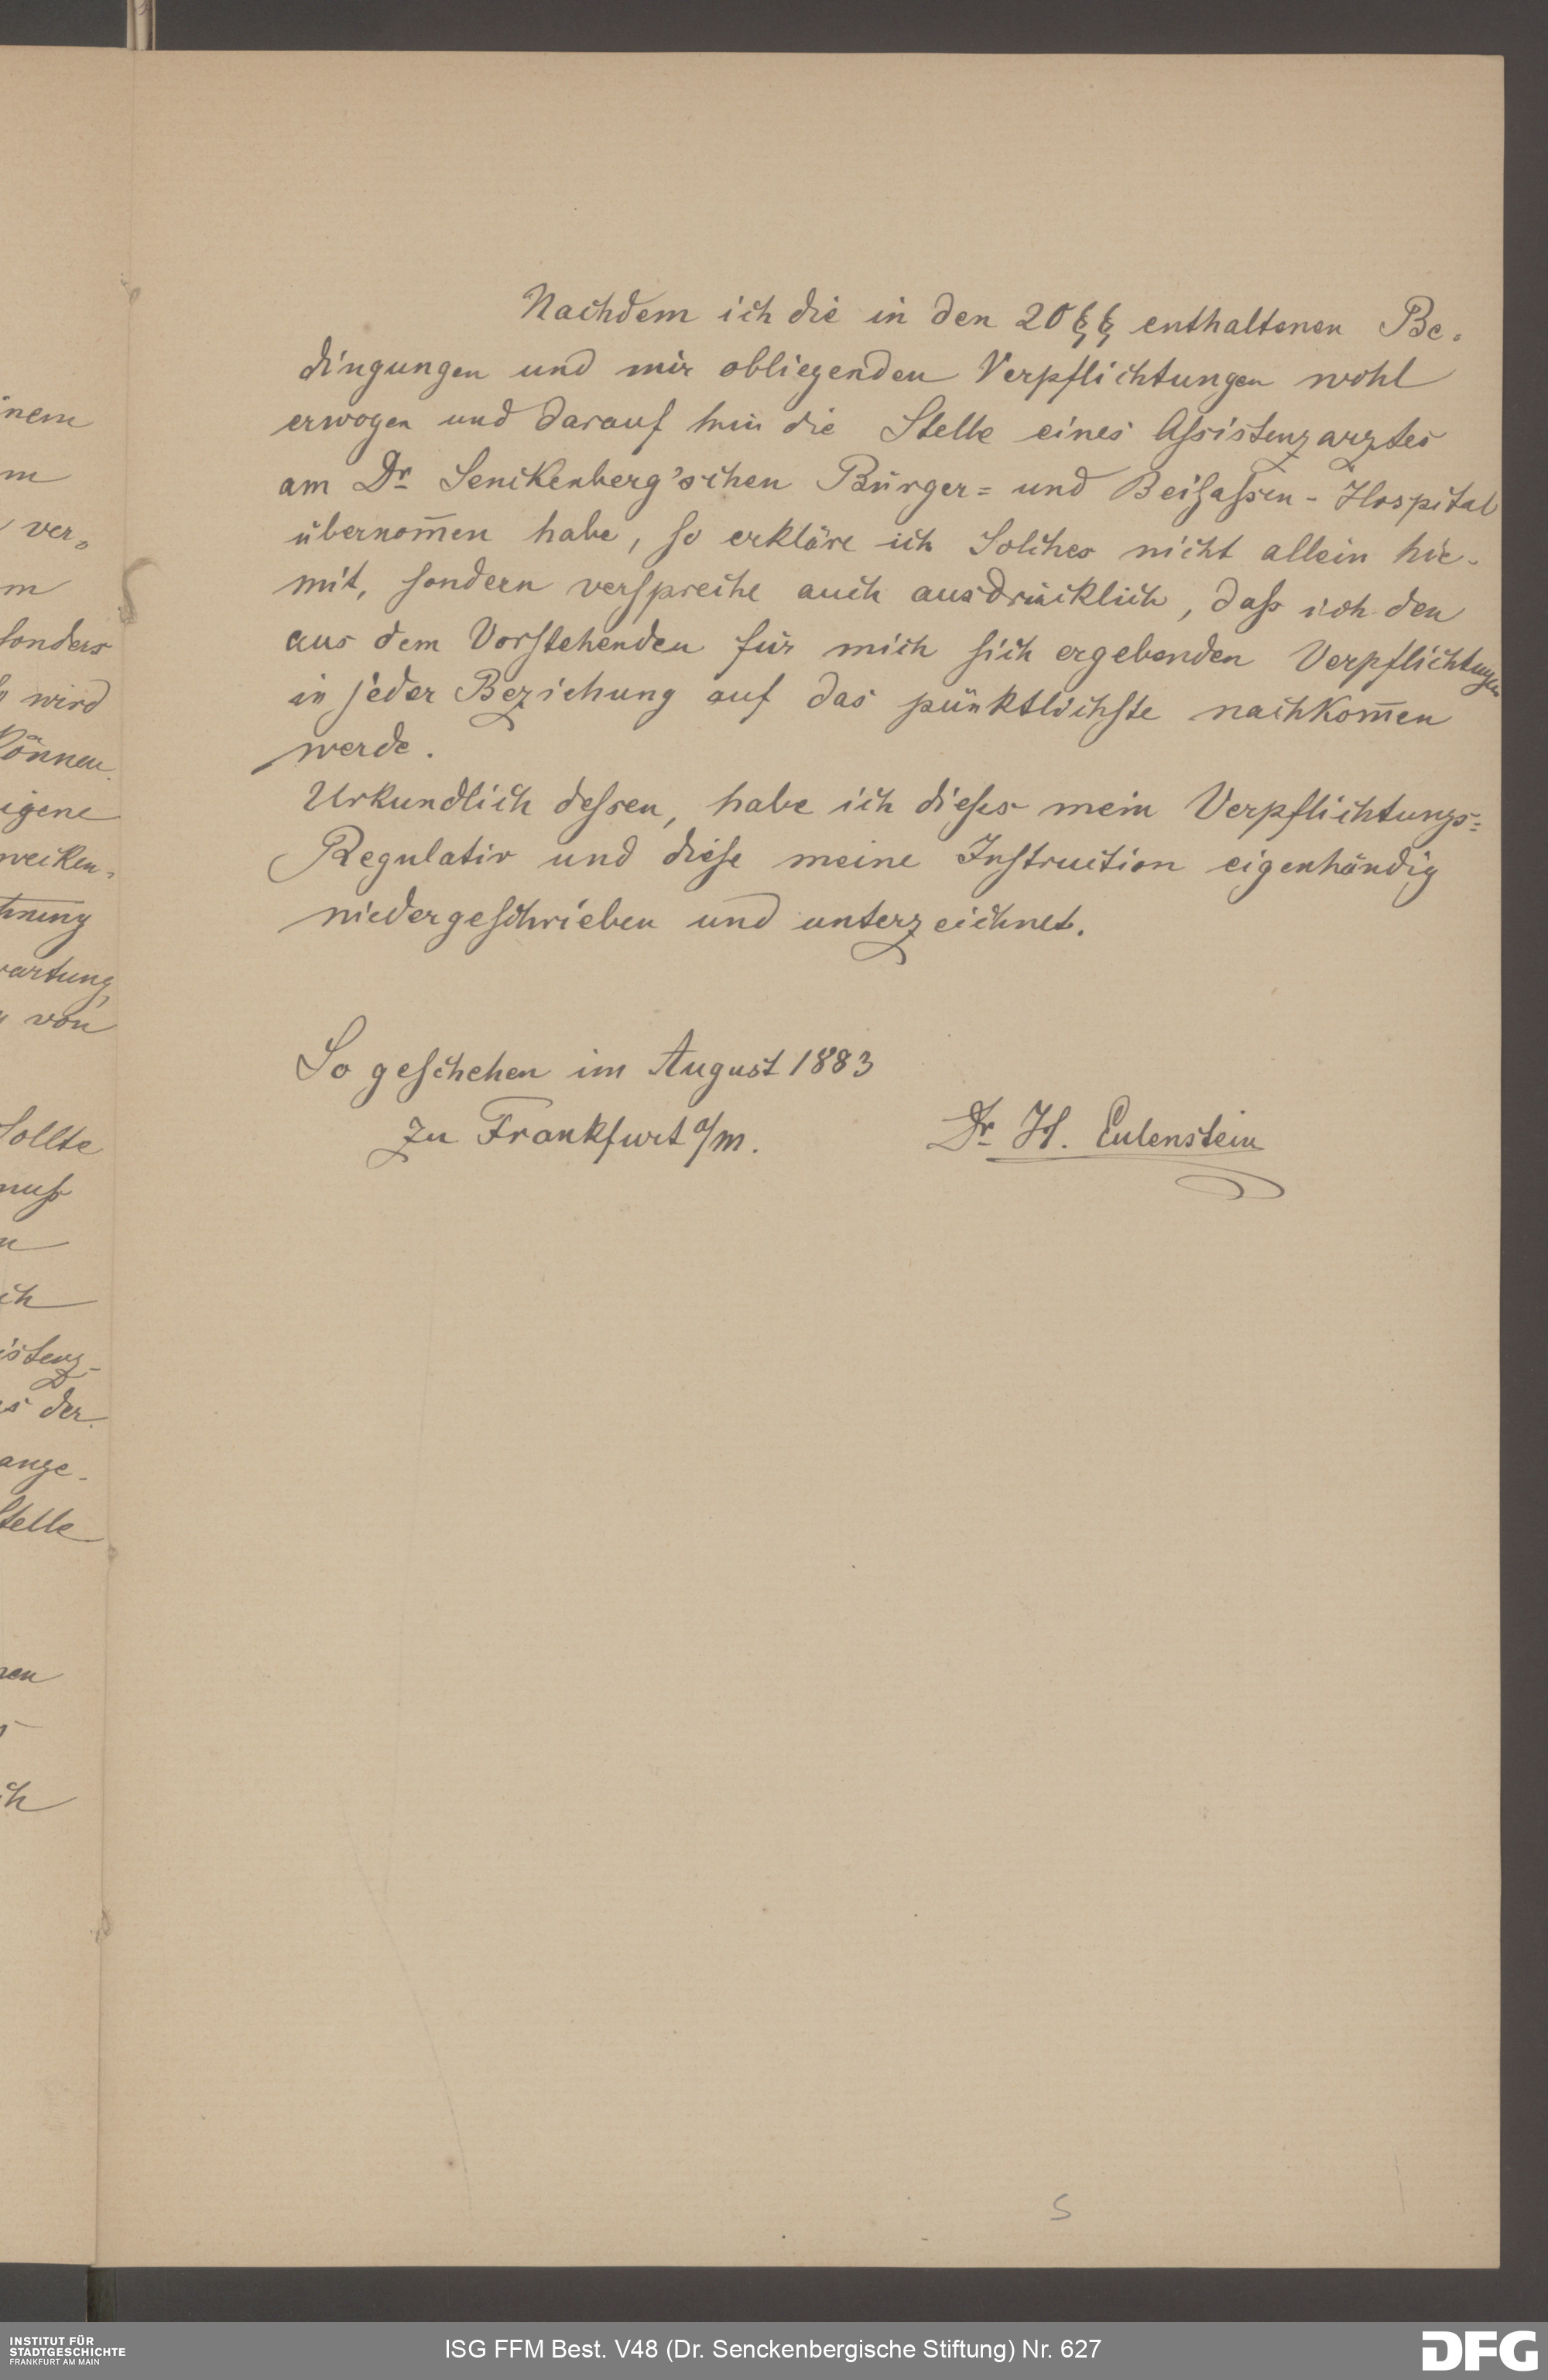 Nachdem ich die in den 20 §§ enthaltenen Be-
dingungen und mir obliegenden Verpflichtungen wohl
erwogen und darauf hin die Stelle eines Assistenzarztes
am Dr. Senckenberg'schen Bürger= und Beisassen-Hospital
übernom̅en habe, so erkläre ich Solches nicht allein hie-
mit, sondern verspreche auch ausdrücklich, daß ich den
aus dem Vorstehenden für mich sich ergebenden Verpflichtungen
in jeder Beziehung auf das pünktlichste nachkom̅en
werde.
Urkundlich dessen, habe ich dieses mein Verpflichtungs=
Regulativ und diese meine Instruction eigenhändig
niedergeschrieben und unterzeichnet.
So geschehen im August 1883
zu Frankfurt a/m.
Dr. H. Eulenstein
inem
m
ver-
m
sonders
wird
können
eigene
wecken-
hnung
wartung
von
sollte
muß
n
ich
istenz-
s der
ange-
Stelle
nen
ch
5
INSTITUT FÜR
STADTGESCHICHTE
FRANKFURT AM MAIN
ISG FFM Best. V48 (Dr. Senckenbergische Stiftung) Nr. 627
DFG